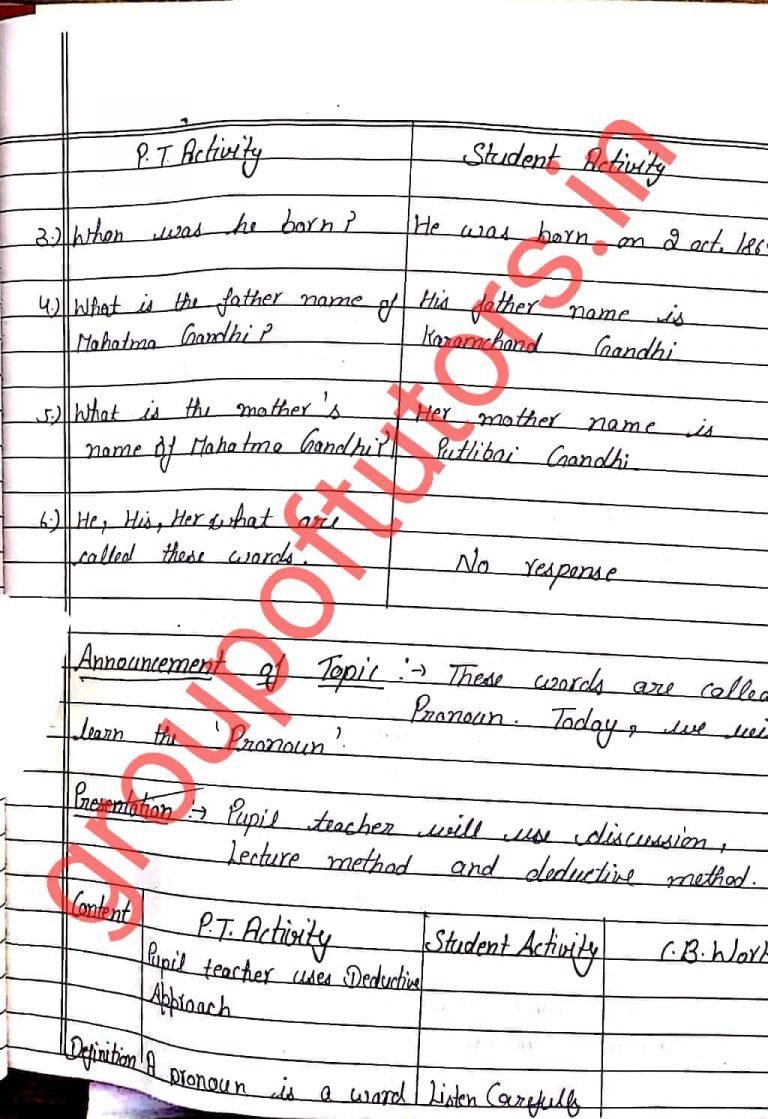 P.T. Activity Student Activity
3.) When was he born? He was born on 2 oct. 186
4.) What is the father name of His father name is
Mahatma Gandhi? Karamchand Gandhi
5.) What is the mother's Her mother name is
name of Mahatma Gandhi? Putlibai Gandhi.
6.) He, His, Her what are
called these words. No response
Announcement of Topic :→ These words are called
Pronoun. Today, we
learn the 'Pronoun'.
Presentation :→ Pupil teacher will use discussion,
Lecture method and deductive method.
Content P.T. Activity Student Activity C.B. Work
Pupil teacher uses Deductive
Approach
Definition A pronoun is a word Listen Carefully
groupoftutors.in